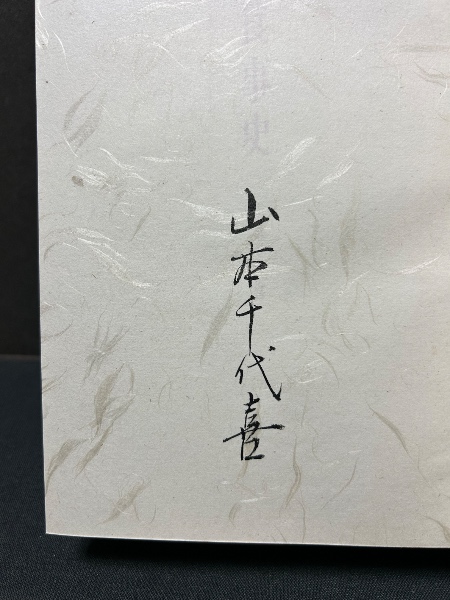 山本千代喜
史